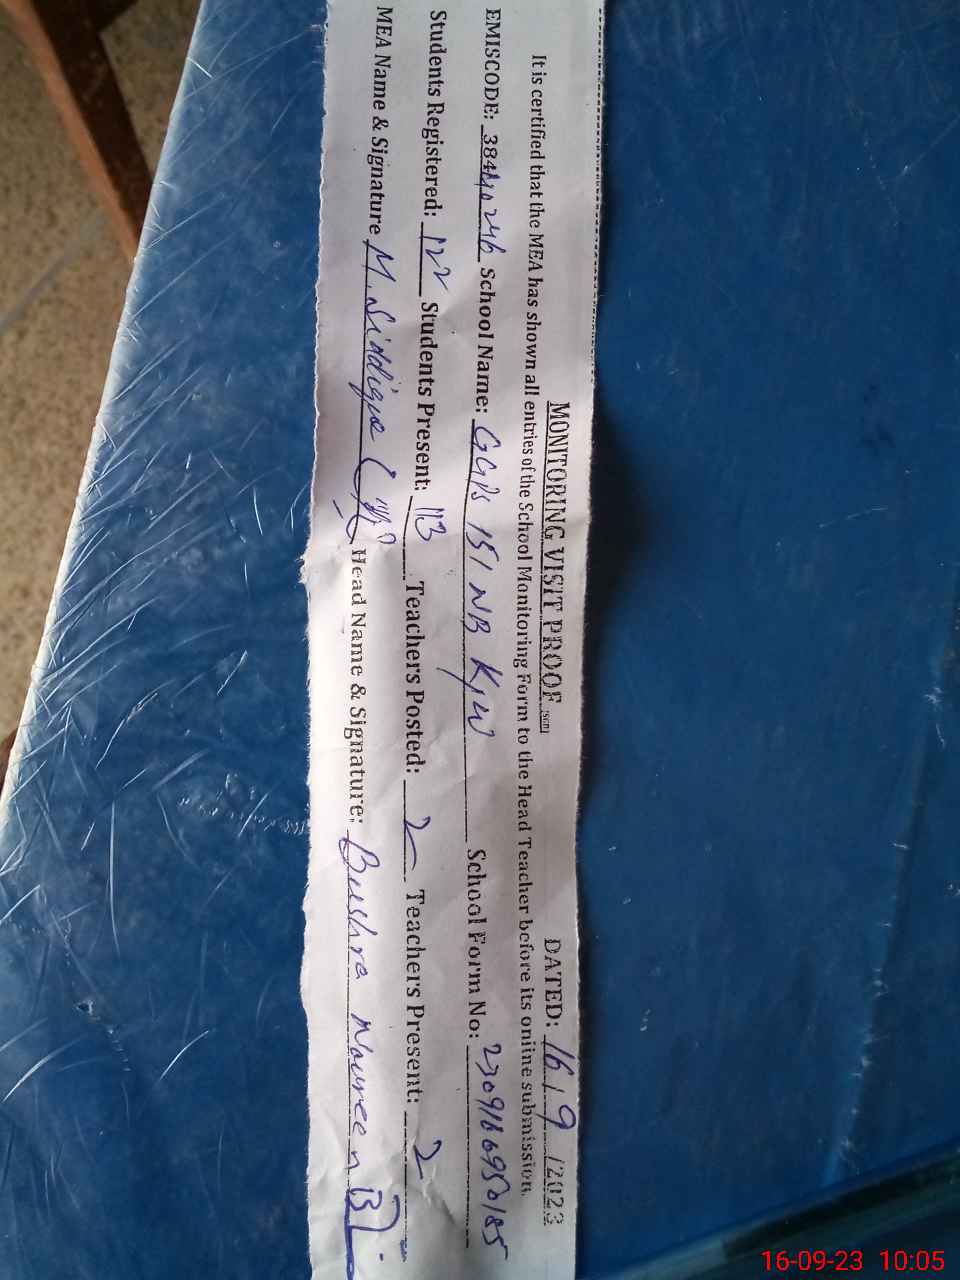 MONITORING VISIT PROOF (SED) DATED: 16/9/2023
It is certified that the MEA has shown all entries of the School Monitoring Form to the Head Teacher before its online submission.
EMISCODE: 38440246 School Name: GGPS 151 NB KJW School Form No: 2309166950185
Students Registered: 122 Students Present: 113 Teachers Posted: 2 Teachers Present: 2
MEA Name & Signature M. Siddique Head Name & Signature: Bushra Noureen
16-09-23 10:05